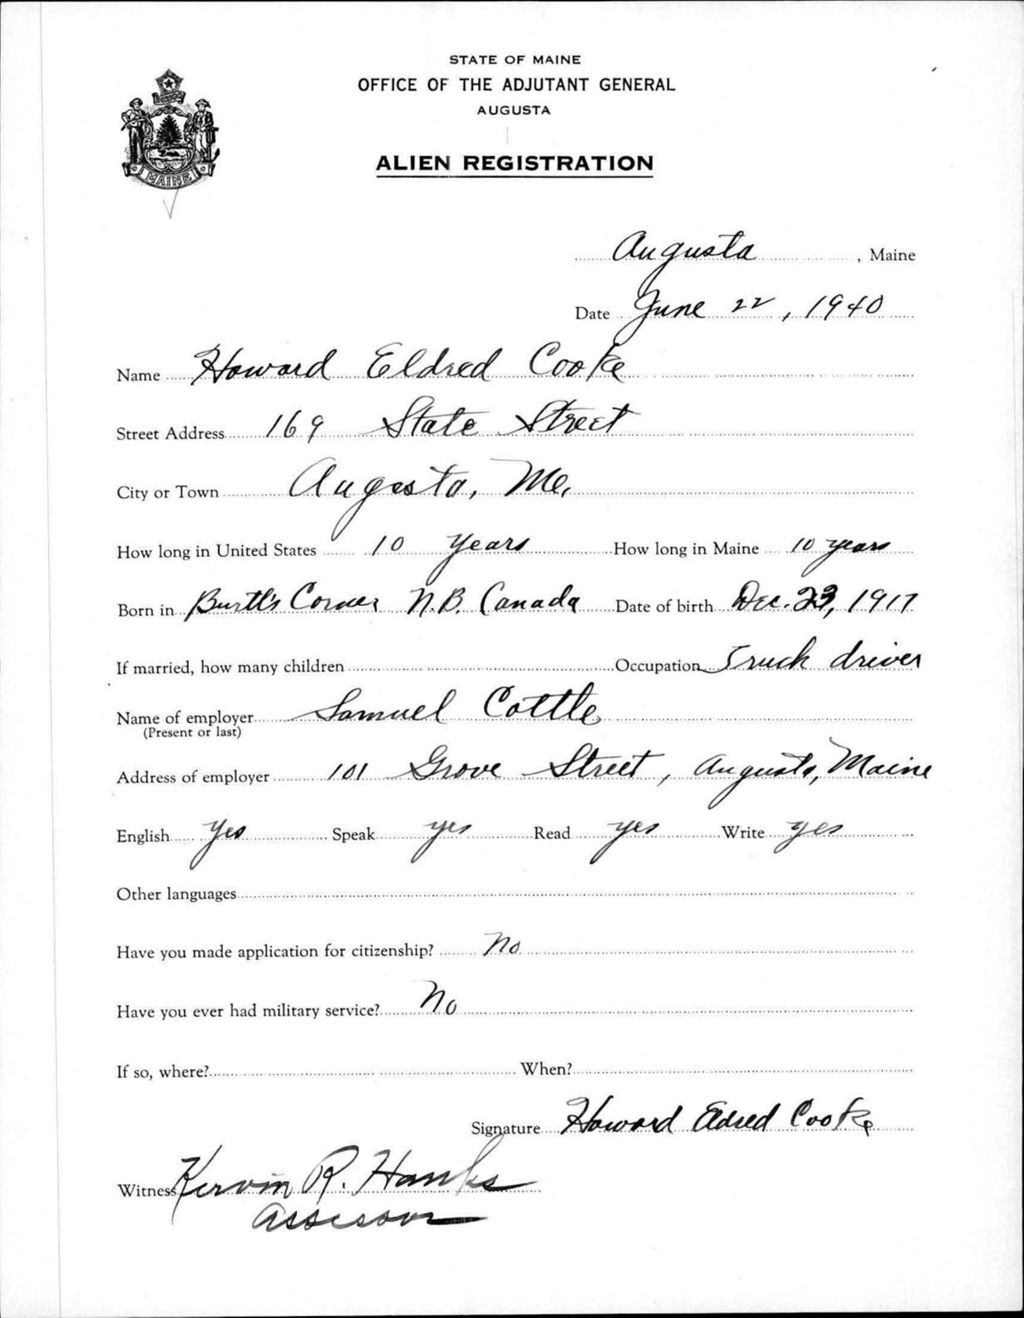 STATE OF MAINE
OFFICE OF THE ADJUTANT GENERAL
AUGUSTA
ALIEN REGISTRATION
MAINE
Augusta, Maine
Date June 22, 1940
Name Howard Eldred Cooke
Street Address 169 State Street
City or Town Augusta, Me.
How long in United States 10 years How long in Maine 10 years
Born in Burtt's Corner N.B. Canada Date of birth Dec. 23, 1917
If married, how many children Occupation Truck driver
Name of employer Samuel Cottle
(Present or last)
Address of employer 101 Grove Street, Augusta, Maine
English Yes Speak yes Read yes Write yes
Other languages
Have you made application for citizenship? No
Have you ever had military service? No
If so, where? When?
Signature Howard Eldred Cooke
Witness Kervin R. Hanks
Assessor